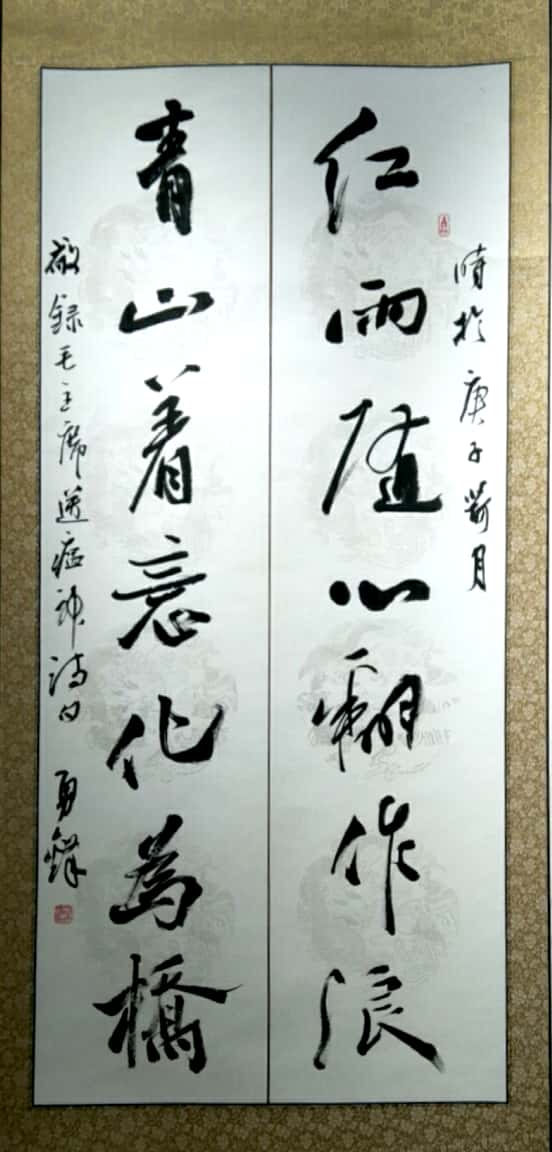 時於庚子荷月
红雨随心翻作浪
青山着意化為橋
敬録毛主席送瘟神詩句 勇